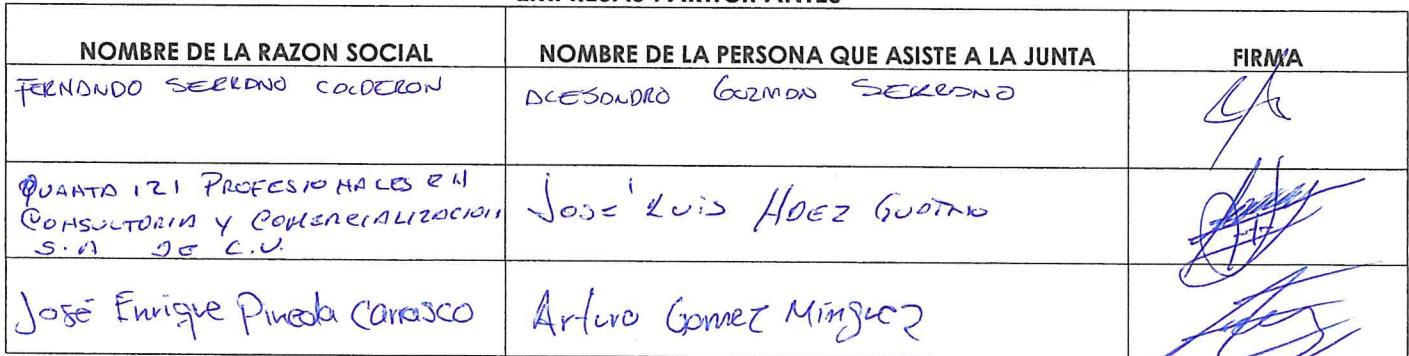 NOMBRE DE LA RAZON SOCIAL NOMBRE DE LA PERSONA QUE ASISTE A LA JUNTA FIRMA
FERNANDO SERRANO CALDERON ALESANDRO GUZMAN SERRANO
QUANTA 121 PROFESIONALES EN
CONSULTORIA Y COMERCIALIZACION
S.A DE C.V.
José Luis HDEZ
José Enrique Pineda Carrasco Arturo Gomez Minguez